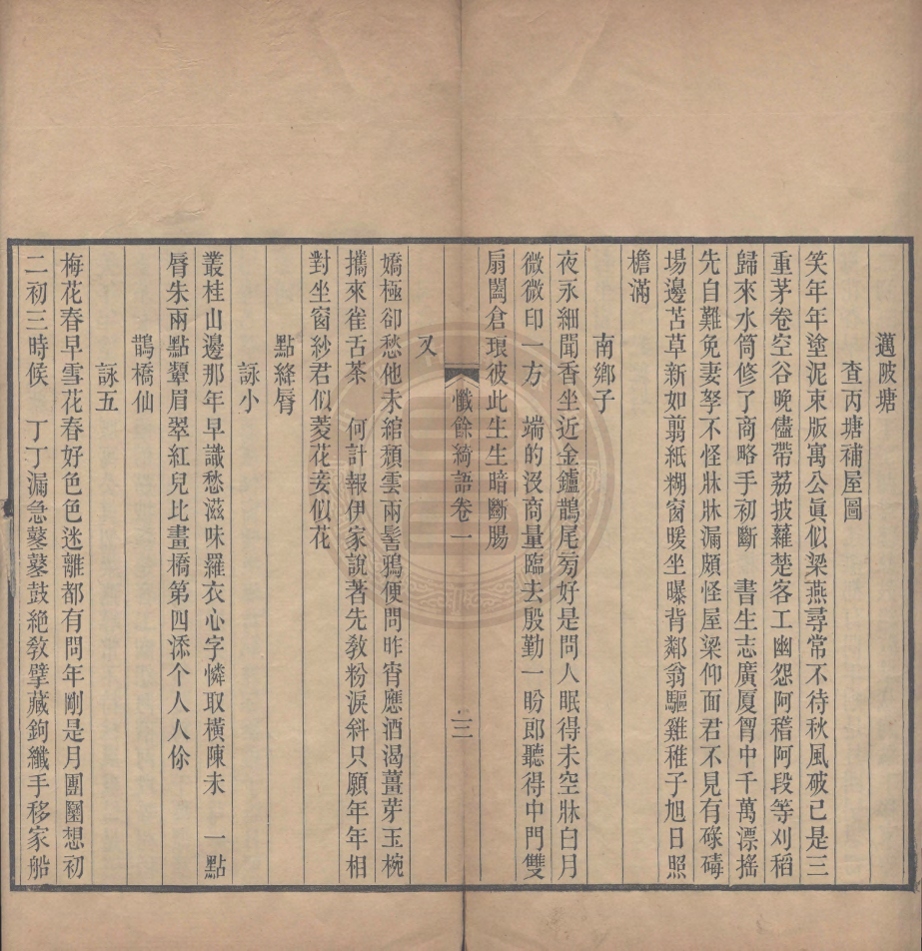 邁陂塘
查丙塘補屋圖
笑年年塗泥束版寓公眞似梁燕尋常不待秋風破已是三
重茅卷空谷晚儘帶荔披蘿楚客工幽怨阿稽阿段等刈稻
歸來水筒修了商略手初斷　書生志廣厦胷中千萬漂搖
先自難免妻孥不怪牀牀漏頗怪屋梁仰面君不見有碌碡
場邊苫草新如剪紙糊窗暖坐曝背鄰翁驅雞稚子旭日照
檐滿
南鄉子
夜永細聞香坐近金鑪鵲尾旁好是問人眠得未空牀白月
微微印一方　端的沒商量臨去殷勤一盼郎聽得中門雙
扇闔倉琅彼此生生暗斷腸
懺餘綺語卷一
三
又
嬌極卻愁他未綰頹雲兩髻鴉便問昨宵應酒渴薑芽玉椀
攜來雀舌茶　何計報伊家說著先敎粉淚斜只願年年相
對坐窗紗君似菱花妾似花
點絳脣
詠小
叢桂山邊那年早識愁滋味羅衣心字憐取橫陳未　一點
脣朱兩點顰眉翠紅兒比畫橋第四添个人人你
鵲橋仙
詠五
梅花春早雪花春好色色迷離都有問年剛是月團圞想初
二初三時候　丁丁漏急鼕鼕鼓絶敎擘藏鉤纖手移家船